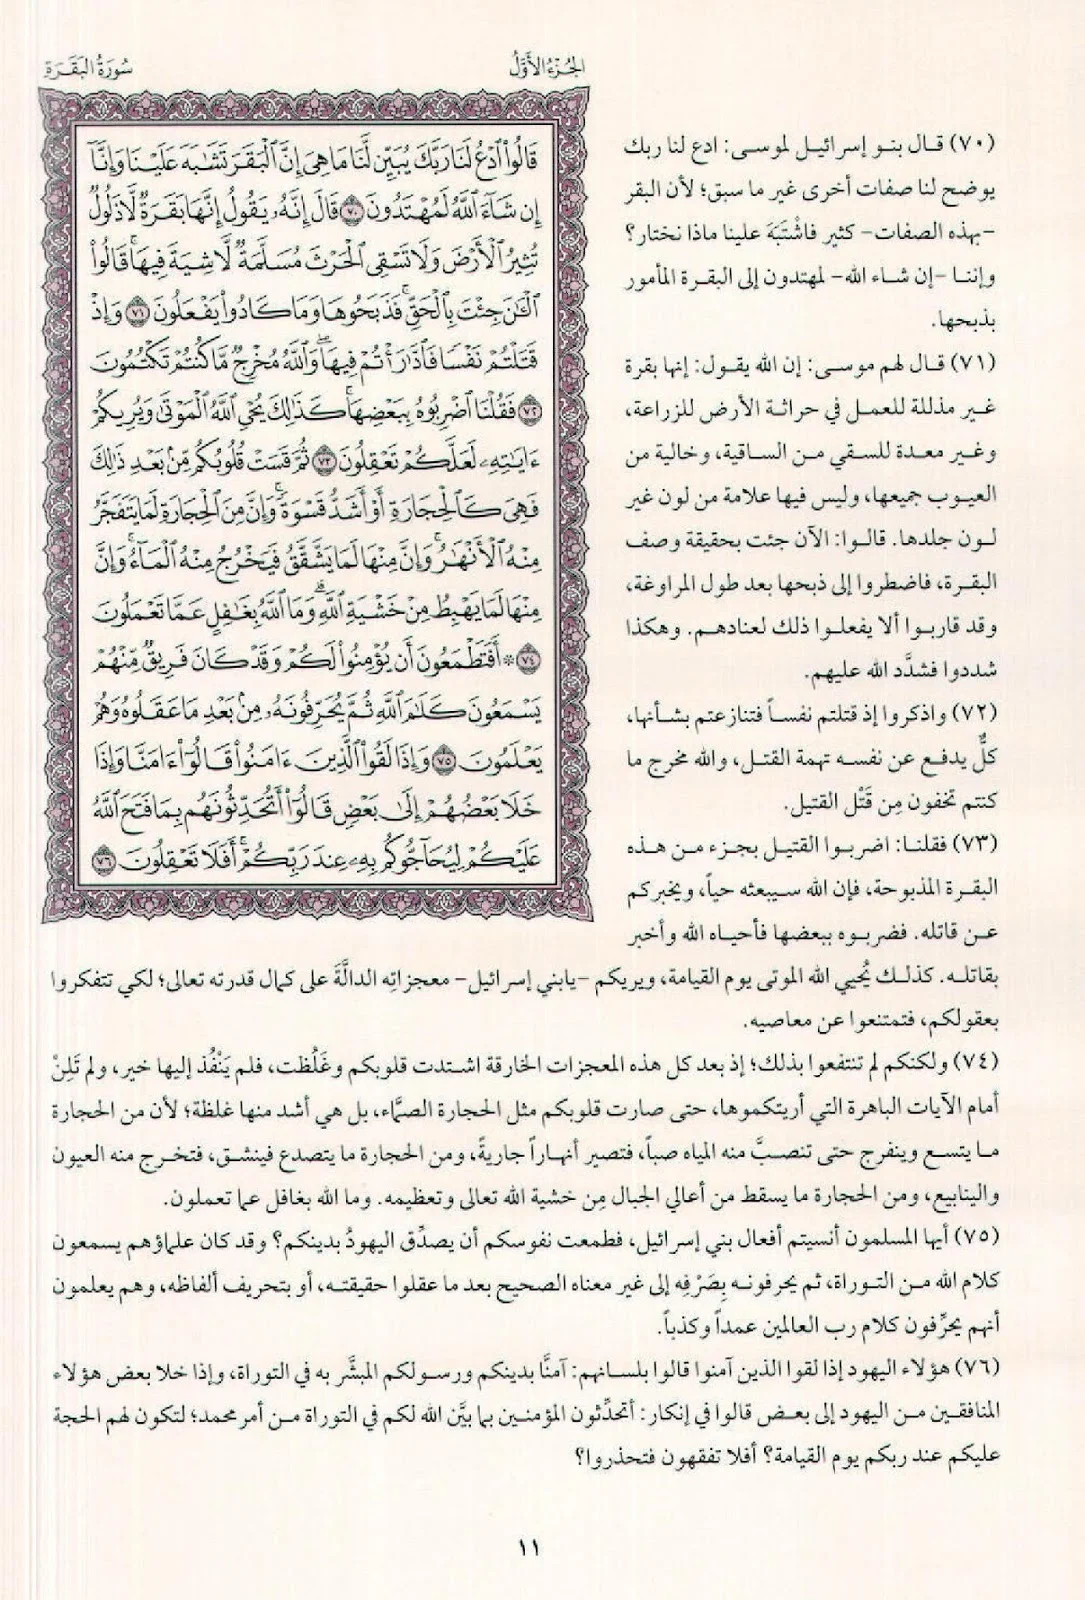 الجُزْءُ الأَوَّلُ
سُورَةُ البَقَرَةِ
قَالُواْ ٱدۡعُ لَنَا رَبَّكَ يُبَيِّن لَّنَا مَا هِىَ إِنَّ ٱلۡبَقَرَ تَشَٰبَهَ عَلَيۡنَا وَإِنَّآ
إِن شَآءَ ٱللَّهُ لَمُهۡتَدُونَ ٧٠ قَالَ إِنَّهُۥ يَقُولُ إِنَّهَا بَقَرَةٞ لَّا ذَلُولٞ
تُثِيرُ ٱلۡأَرۡضَ وَلَا تَسۡقِى ٱلۡحَرۡثَ مُسَلَّمَةٞ لَّا شِيَةَ فِيهَاۚ قَالُواْ
ٱلۡـَٰٔنَ جِئۡتَ بِٱلۡحَقِّۚ فَذَبَحُوهَا وَمَا كَادُواْ يَفۡعَلُونَ ٧١ وَإِذۡ
قَتَلۡتُمۡ نَفۡسٗا فَٱدَّٰرَٰٔتُمۡ فِيهَاۖ وَٱللَّهُ مُخۡرِجٞ مَّا كُنتُمۡ تَكۡتُمُونَ
٧٢ فَقُلۡنَا ٱضۡرِبُوهُ بِبَعۡضِهَاۚ كَذَٰلِكَ يُحۡىِ ٱللَّهُ ٱلۡمَوۡتَىٰ وَيُرِيكُمۡ
ءَايَٰتِهِۦ لَعَلَّكُمۡ تَعۡقِلُونَ ٧٣ ثُمَّ قَسَتۡ قُلُوبُكُم مِّنۢ بَعۡدِ ذَٰلِكَ
فَهِىَ كَٱلۡحِجَارَةِ أَوۡ أَشَدُّ قَسۡوَةٗۚ وَإِنَّ مِنَ ٱلۡحِجَارَةِ لَمَا يَتَفَجَّرُ
مِنۡهُ ٱلۡأَنۡهَٰرُۚ وَإِنَّ مِنۡهَا لَمَا يَشَّقَّقُ فَيَخۡرُجُ مِنۡهُ ٱلۡمَآءُۚ وَإِنَّ
مِنۡهَا لَمَا يَهۡبِطُ مِنۡ خَشۡيَةِ ٱللَّهِۗ وَمَا ٱللَّهُ بِغَٰفِلٍ عَمَّا تَعۡمَلُونَ
٧٤ ۞ أَفَتَطۡمَعُونَ أَن يُؤۡمِنُواْ لَكُمۡ وَقَدۡ كَانَ فَرِيقٞ مِّنۡهُمۡ
يَسۡمَعُونَ كَلَٰمَ ٱللَّهِ ثُمَّ يُحَرِّفُونَهُۥ مِنۢ بَعۡدِ مَا عَقَلُوهُ وَهُمۡ
يَعۡلَمُونَ ٧٥ وَإِذَا لَقُواْ ٱلَّذِينَ ءَامَنُواْ قَالُوٓاْ ءَامَنَّا وَإِذَا
خَلَا بَعۡضُهُمۡ إِلَىٰ بَعۡضٖ قَالُوٓاْ أَتُحَدِّثُونَهُم بِمَا فَتَحَ ٱللَّهُ
عَلَيۡكُمۡ لِيُحَآجُّوكُم بِهِۦ عِندَ رَبِّكُمۡۚ أَفَلَا تَعۡقِلُونَ ٧٦
(٧٠) قـال بنـو إسرائيـل لموسـى: ادع لنا ربك
يوضح لنا صفات أخرى غير ما سبق؛ لأن البقر
-بهذه الصفات- كثير فاشْتَبَهَ علينا ماذا نختار؟
وإننا -إن شاء الله- لمهتدون إلى البقرة المأمور
بذبحها.
(٧١) قال لهم موسى: إن الله يقول: إنها بقرة
غير مذللة للعمل في حراثة الأرض للزراعة،
وغير معدة للسقي من الساقية، وخالية من
العيوب جميعها، وليس فيها علامة من لون غير
لون جلدها. قالوا: الآن جئت بحقيقة وصف
البقرة، فاضطروا إلى ذبحها بعد طول المراوغة،
وقد قاربوا ألا يفعلوا ذلك لعنادهم. وهكذا
شددوا فشدَّد الله عليهم.
(٧٢) واذكروا إذ قتلتم نفساً فتنازعتم بشأنها،
كلٌّ يدفع عن نفسه تهمة القتل، والله مخرج ما
كنتم تخفون مِن قَتْل القتيل.
(٧٣) فقلنا: اضربوا القتيل بجزء من هذه
البقرة المذبوحة، فإن الله سيبعثه حياً، ويخبركم
عن قاتله. فضربوه ببعضها فأحياه الله وأخبر
بقاتله. كذلك يُحيي الله الموتى يوم القيامة، ويريكم -يابني إسرائيل- معجزاتِه الدالَّةَ على كمال قدرته تعالى؛ لكي تتفكروا
بعقولكم، فتمتنعوا عن معاصيه.
(٧٤) ولكنكم لم تنتفعوا بذلك؛ إذ بعد كل هذه المعجزات الخارقة اشتدت قلوبكم وغَلُظت، فلم يَنْفُذ إليها خير، ولم تَلِنْ
أمام الآيات الباهرة التي أريتكموها، حتى صارت قلوبكم مثل الحجارة الصمَّاء، بل هي أشد منها غلظة؛ لأن من الحجارة
ما يتسع وينفرج حتى تنصبَّ منه المياه صباً، فتصير أنهاراً جاريةً، ومن الحجارة ما يتصدع فينشق، فتخرج منه العيون
والينابيع، ومن الحجارة ما يسقط من أعالي الجبال مِن خشية الله تعالى وتعظيمه. وما الله بغافل عما تعملون.
(٧٥) أيها المسلمون أنسيتم أفعال بني إسرائيل، فطمعت نفوسكم أن يصدِّق اليهودُ بدينكم؟ وقد كان علماؤهم يسمعون
كلام الله من التوراة، ثم يحرفونه بِصَرْفِه إلى غير معناه الصحيح بعد ما عقلوا حقيقته، أو بتحريف ألفاظه، وهم يعلمون
أنهم يحرِّفون كلام رب العالمين عمداً وكذباً.
(٧٦) هؤلاء اليهود إذا لقوا الذين آمنوا قالوا بلسانهم: آمنَّا بدينكم ورسولكم المبشَّر به في التوراة، وإذا خلا بعض هؤلاء
المنافقين من اليهود إلى بعض قالوا في إنكار: أتحدِّثون المؤمنين بما بيَّن الله لكم في التوراة من أمر محمد؛ لتكون لهم الحجة
عليكم عند ربكم يوم القيامة؟ أفلا تفقهون فتحذروا؟
١١